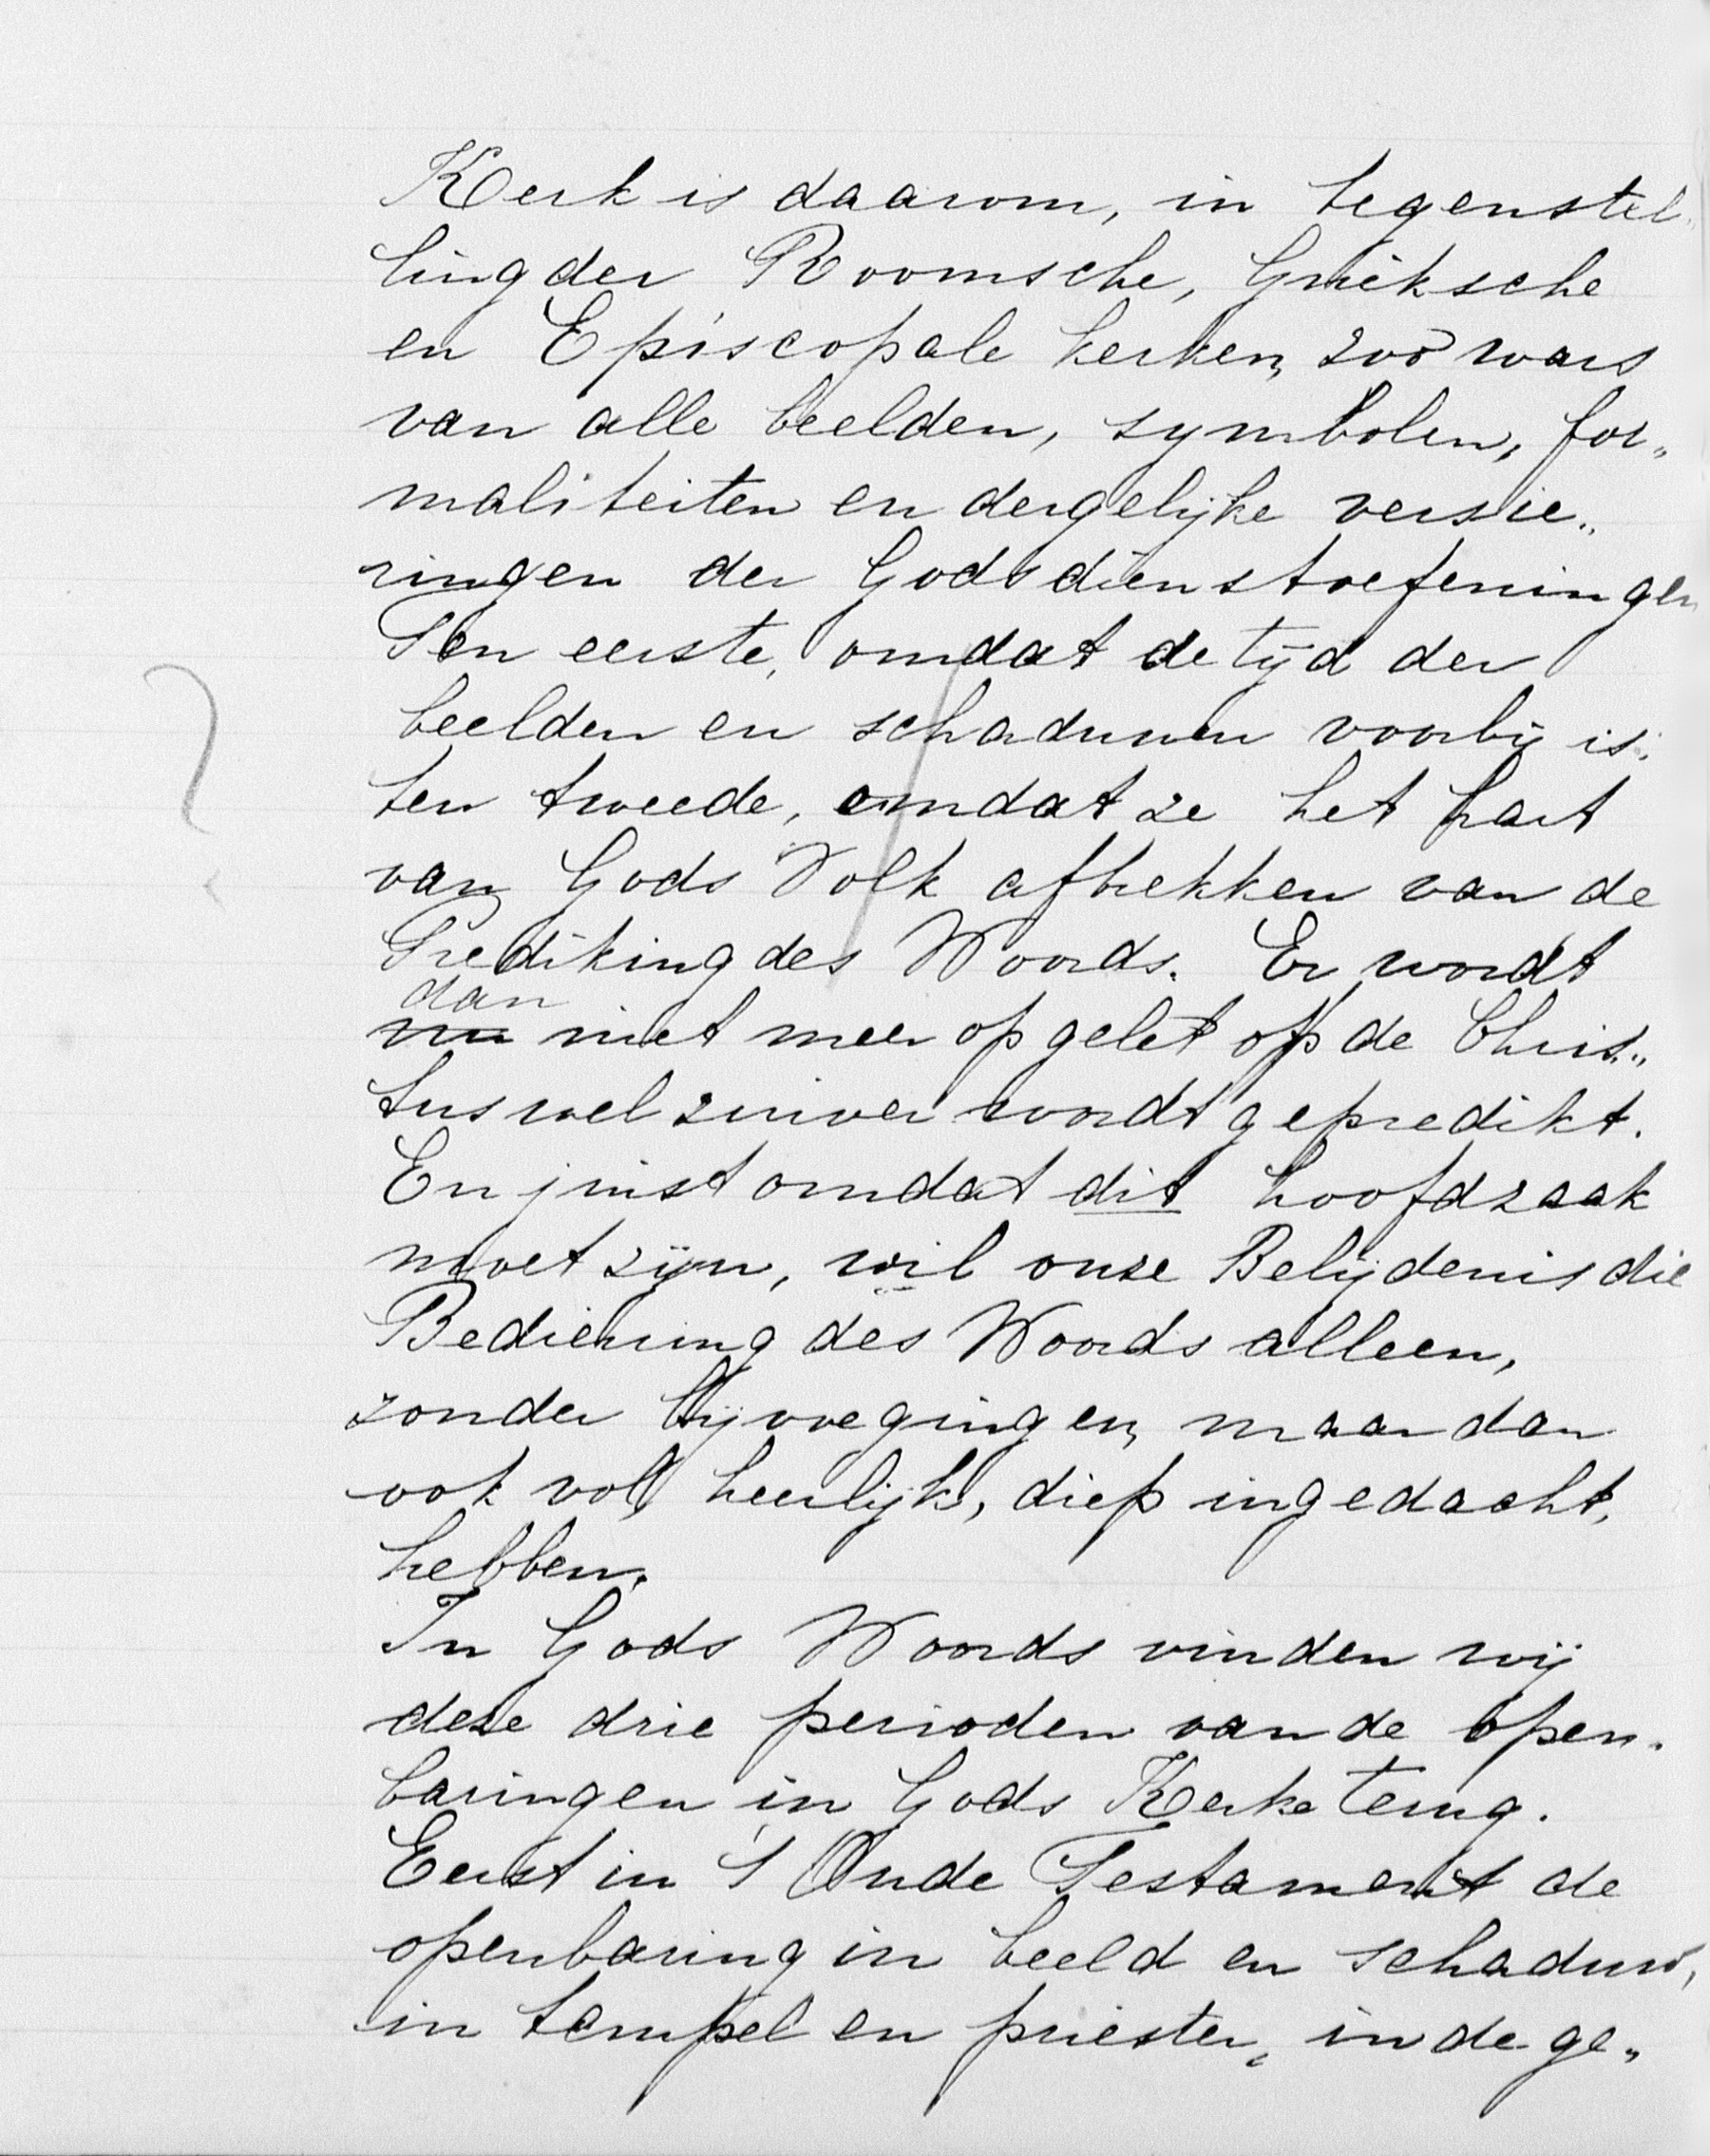 Kerk is daarom, in tegenstel„
ling der Roomsche, Grieksche
en Episcopale kerken, zoo wars
van alle beelden, symbolen, for„
maliteiten en dergelijke versie„
ringen der Godsdienstoefeningen
Ten eerste, omdat de tijd der
beelden en schaduwen voorbij is.
ten tweede, omdat ze het hart
van Gods Volk aftrekken van de
Prediking des Woords. Er wordt
dan
nu niet meer op gelet of de Chris„
tus wel zuiver wordt gepredikt.
En juist omdat dit hoofdzaak
moet zijn, wil onze Belijdenis die
Bediening des Woords alleen,
zonder bijvoegingen, maar dan
ook vol, heerlijk, diep ingedacht,
hebben.
In Gods Woords vinden wij
deze drie perioden van de open„
baringen in Gods Kerke terug.
Eerst in 't Oude Testament de
openbaring in beeld en schaduw,
in tempel en priester, in de ge„
?